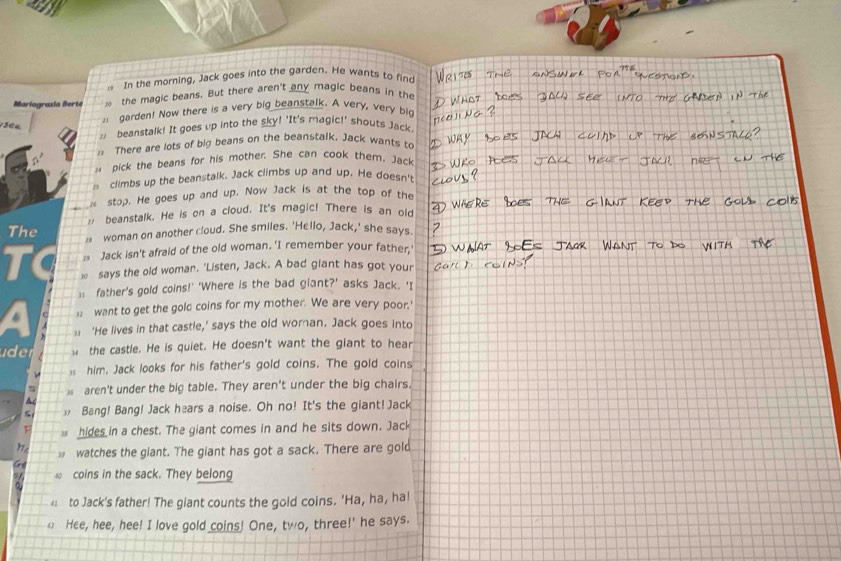 Mariagrazia Berte
The
TO
A
19 In the morning, Jack goes into the garden. He wants to find
20 the magic beans. But there aren't any magic beans in the
21 garden! Now there is a very big beanstalk. A very, very big
22 beanstalk! It goes up into the sky! 'It's magic!' shouts Jack.
23 There are lots of big beans on the beanstalk. Jack wants to
24 pick the beans for his mother. She can cook them. Jack
25 climbs up the beanstalk. Jack climbs up and up. He doesn't
26 stop. He goes up and up. Now Jack is at the top of the
27 beanstalk. He is on a cloud. It's magic! There is an old
28 woman on another cloud. She smiles. 'Hello, Jack,' she says.
29 Jack isn't afraid of the old woman. 'I remember your father,'
30 says the old woman. 'Listen, Jack. A bad giant has got your
31 father's gold coins!' 'Where is the bad giant?' asks Jack. 'I
32 want to get the gold coins for my mother. We are very poor.'
33 'He lives in that castle,' says the old woman. Jack goes into
34 the castle. He is quiet. He doesn't want the giant to hear
35 him. Jack looks for his father's gold coins. The gold coins
36 aren't under the big table. They aren't under the big chairs.
37 Bang! Bang! Jack hears a noise. Oh no! It's the giant! Jack
38 hides in a chest. The giant comes in and he sits down. Jack
39 watches the giant. The giant has got a sack. There are gold
40 coins in the sack. They belong
41 to Jack's father! The giant counts the gold coins. 'Ha, ha, ha!
42 Hee, hee, hee! I love gold coins! One, two, three!' he says.
WRITE THE ANSWER FOR THE QUESTIONS.
1) WHAT DOES JACK SEE INTO THE GARDEN IN THE
MORNING?
2) WHY DOES JACK CLIMB UP THE BEANSTALK?
3) WHO DOES JACK MEET ON THE
CLOUD?
4) WHERE DOES THE GIANT KEEP THE GOLD COINS
?
5) WHAT DOES JACK WANT TO DO WITH THE
GOLD COINS?